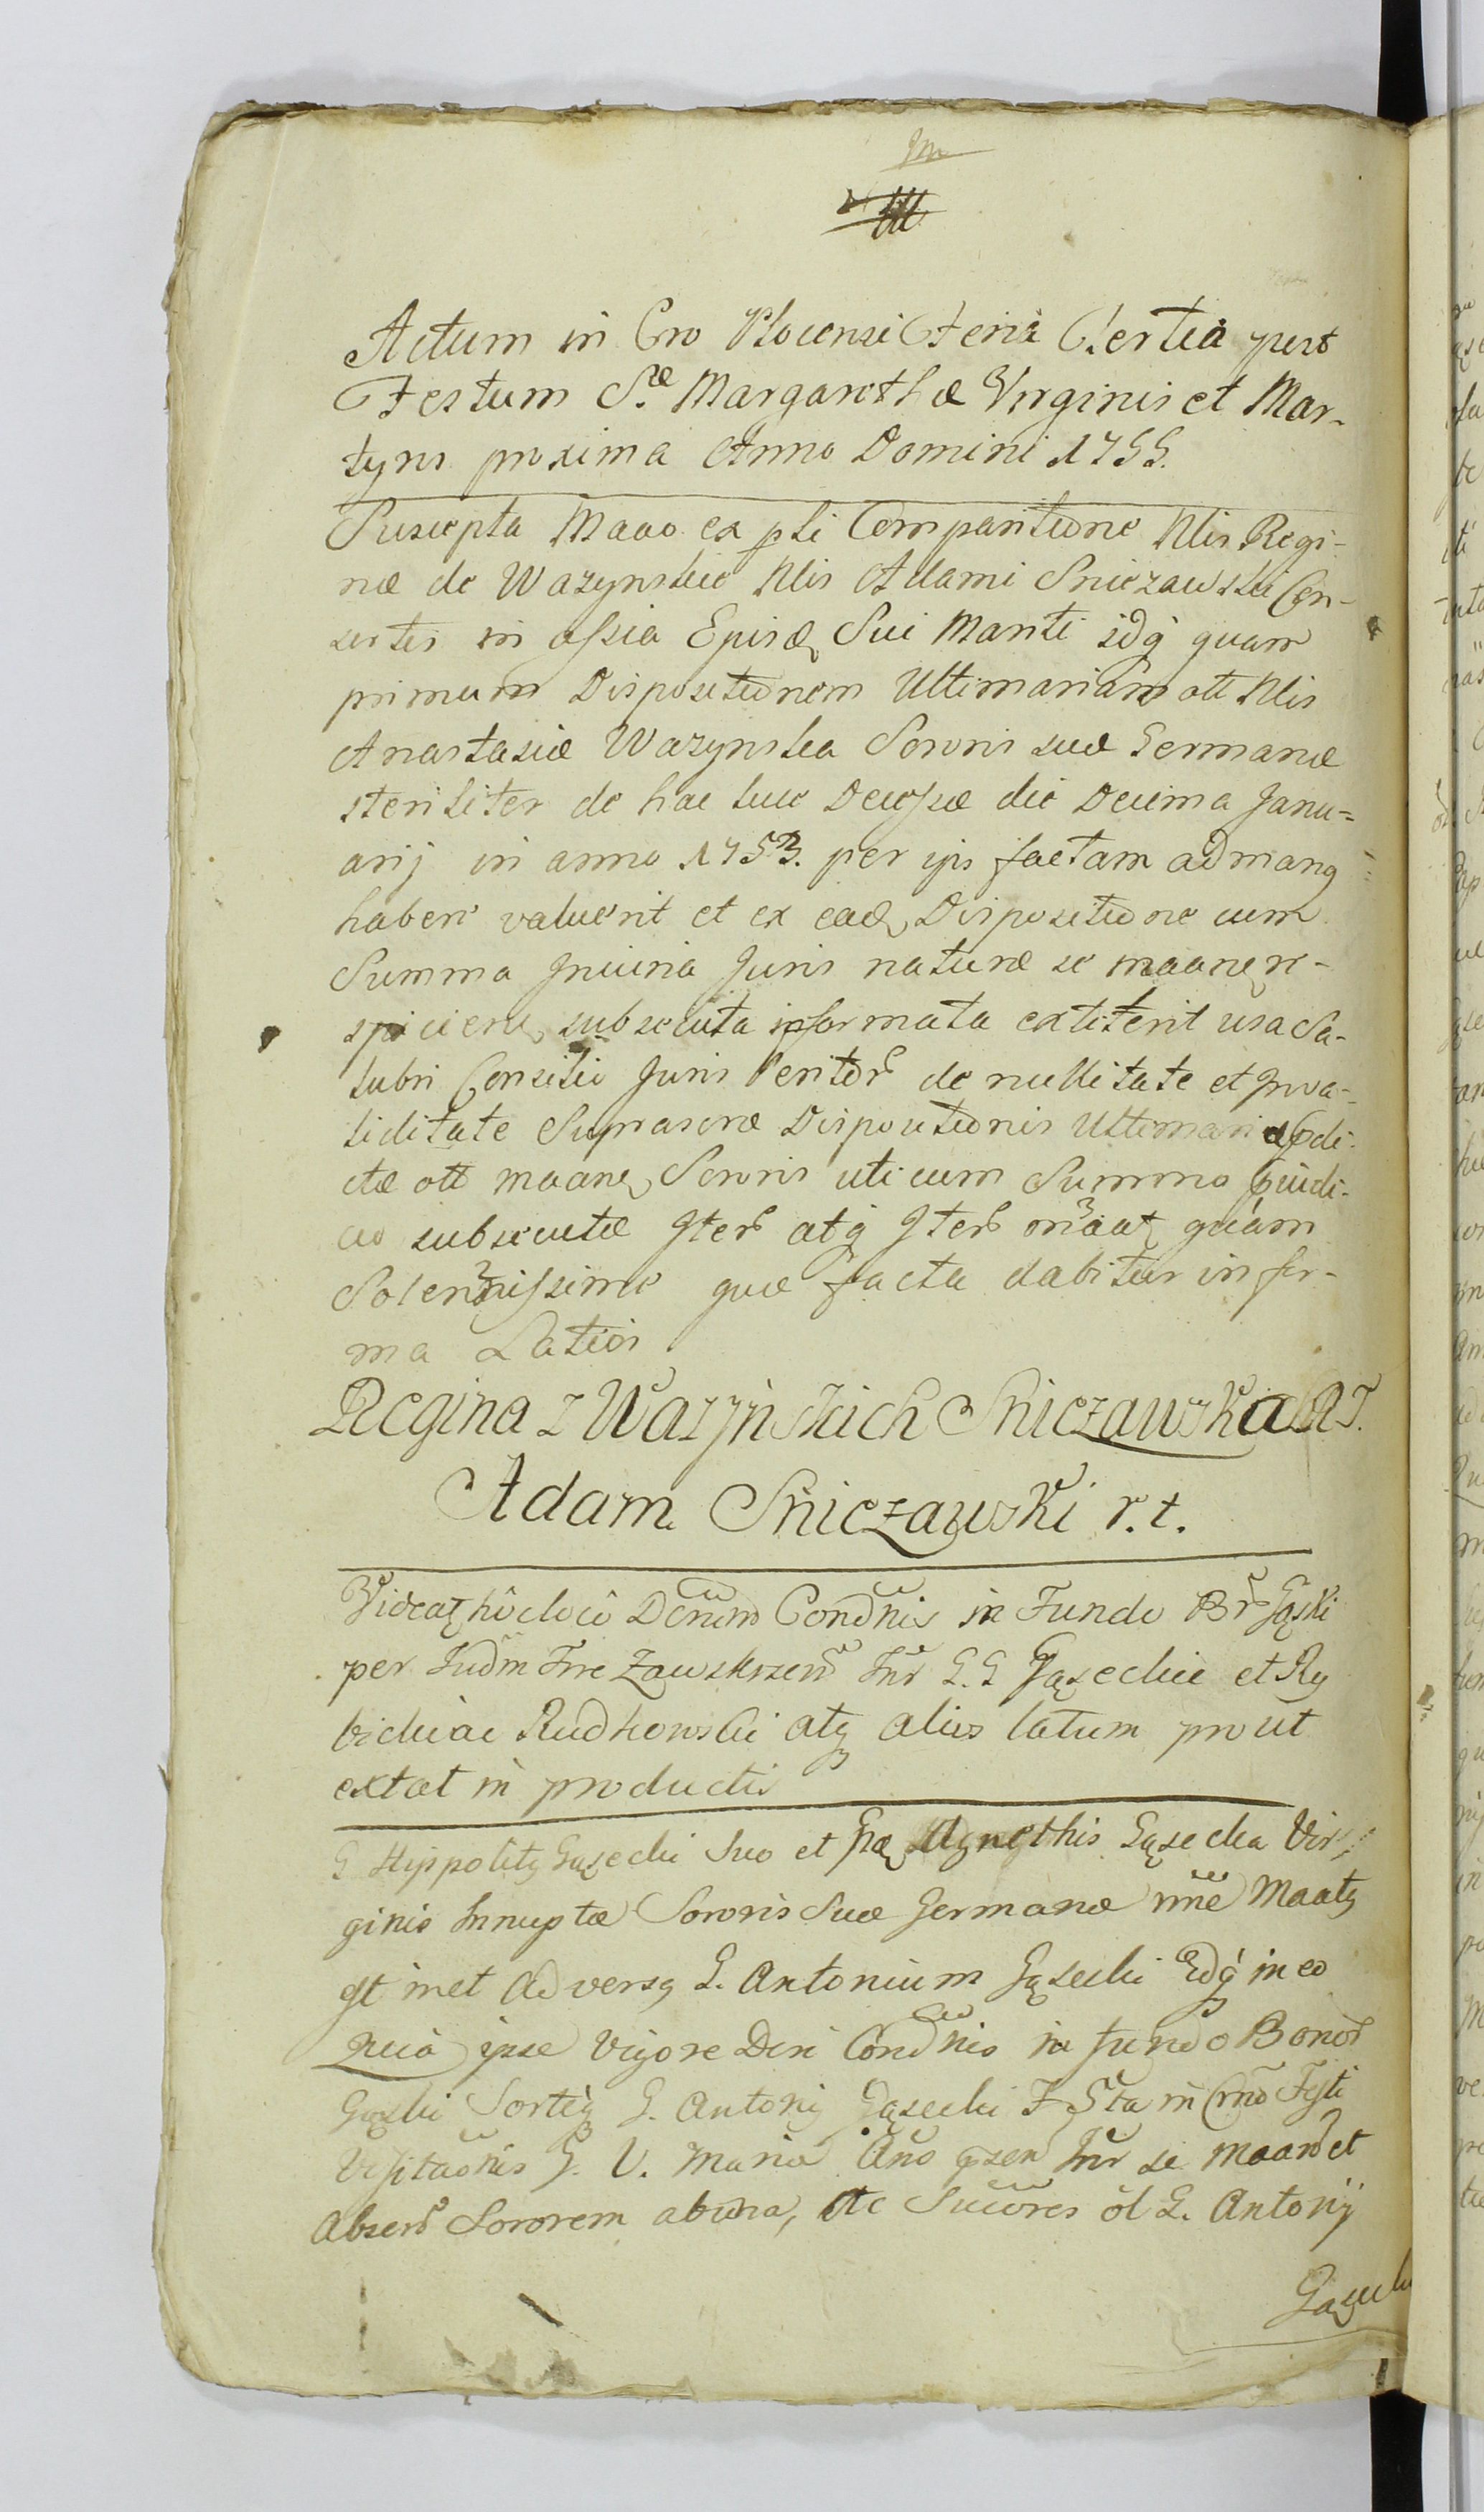 Actum in Cro Plocensi Feria Tertia post
Festum S.æ Margarethæ Virginis et Mar-
tyris proxima Anno Domini 1755.
Suscepta Maaō ex pti Comparitione Nlis Regi-
næ de Wazynskie Nlis Adami Sniezawski Con-
sortis in assia Episd Sui Mariti idq quam
primum Dispositionem Ultimariam olt Nlis
Anastasiæ Wazynska Sororis suæ Germanæ
steriliter de hac luce Decessæ die Decima Janu=
arij in anno 1753. per ips factam ad mang
habere valuerit et ex ead Dispositione cum
Summa Iniuria Juris naturæ se maanē re-
spiciens subsecuta informata extiterit usa Sa-
lubri Consilio Juris Peritor de nullitate et Inva-
liditate Suprascræ Dispositionis Ultimariæ predi-
ctæ olt maanē Sororis uti cum Summo Præiudi-
cio subsecutæ Iter atq Iter maat quam
Solennissime quæ facta dabitur in for-
ma Latiori
Regina z Wazynskich Sniezawska R T.
Adam Sniezawski r. t.
Videat hôc locô Dcrum Condnis in Fundo Br Gąski
per Judm Trre Zawskrzen Inr G. G Gąseckie et Ry
bickiac Rudkowski atq alios latum prout
extat in productis
G Hippolity Gąsecki Suo et Gæ Agnethis Gąsecka Vir-
ginis Innuptæ Sororis Suæ Germanæ nne Maatq
st inet Adversq G. Antonium Gąsecki Idq in eo
Quia ipse Vigore Dcri Condnis in fundo Bonor
Gąski Sortiq G. Antonij Gąsecki F Sta in Crno Festi
Visitaonis G. V. Mariæ Ano psen Inr se Maam et
Absen Sororem abina, Ac Succores ol G. Antonij
Gąsecki